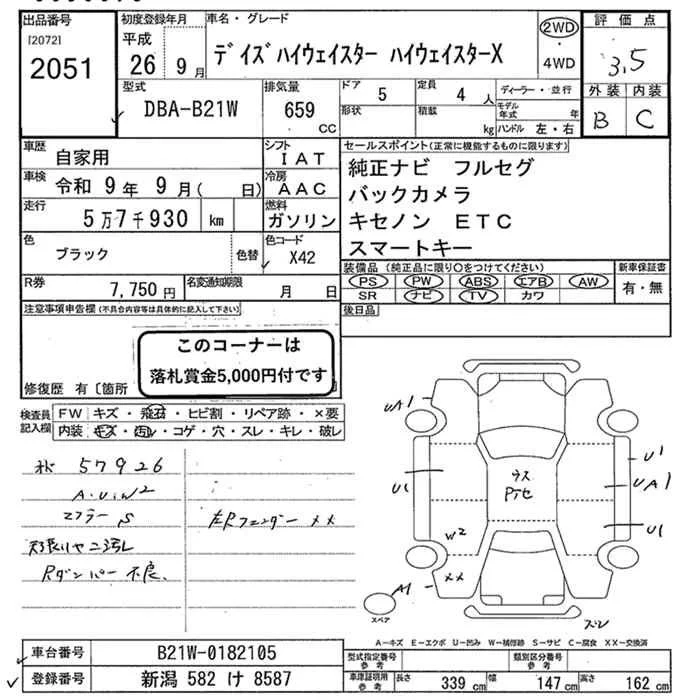 出品番号
[2072]
2051
初度登録年月
平成
26 9月
車名・グレード
デイズハイウェイスター ハイウェイスターX
2WD
・
4WD
評価点
3.5
外装 内装
B C
型式
DBA-B21W
排気量
659
CC
ドア 5
形状
定員 4 人
積載
kg
ディーラー・並行
モデル年式 年
ハンドル 左・右
車歴
自家用
シフト
IAT
車検
令和 9年 9月( 日)
冷房
AAC
走行
5万7千930 km
燃料
ガソリン
色
ブラック
色替
色コード
X42
セールスポイント(正常に機能するものに限ります)
純正ナビ フルセグ
バックカメラ
キセノン ETC
スマートキー
R券
7,750円
名変通知期限
月 日
装備品(純正品に限り○をつけてください)
PS PW ABS エアB AW
SR ナビ TV カワ
新車保証書
有・無
注意事項申告欄(不具合内容等は具体的に記入して下さい)
後日品
このコーナーは
落札賞金5,000円付です
修復歴 有〔箇所
検査員
記入欄
FW キズ・飛石・ヒビ割・リペア跡・×要
内装 キズ・汚レ・コゲ・穴・スレ・キレ・破レ
57926
A・U・W2
マフラーS
天張リヤ二汚レ
Rダンパー不良
左Rフェンダー ××
UA1
U1
U1
UA1
U1
ウス
Pテセ
W2
××
A1
スペア
ズレ
A―キズ E―エクボ U―凹み W―補修跡 S―サビ C―腐食 XX―交換済
車台番号
B21W-0182105
登録番号
新潟 582 け 8587
型式指定番号
参考
類別区分番号
参考
車庫証明用
参考
長さ 339 cm
幅 147 cm
高さ 162 cm